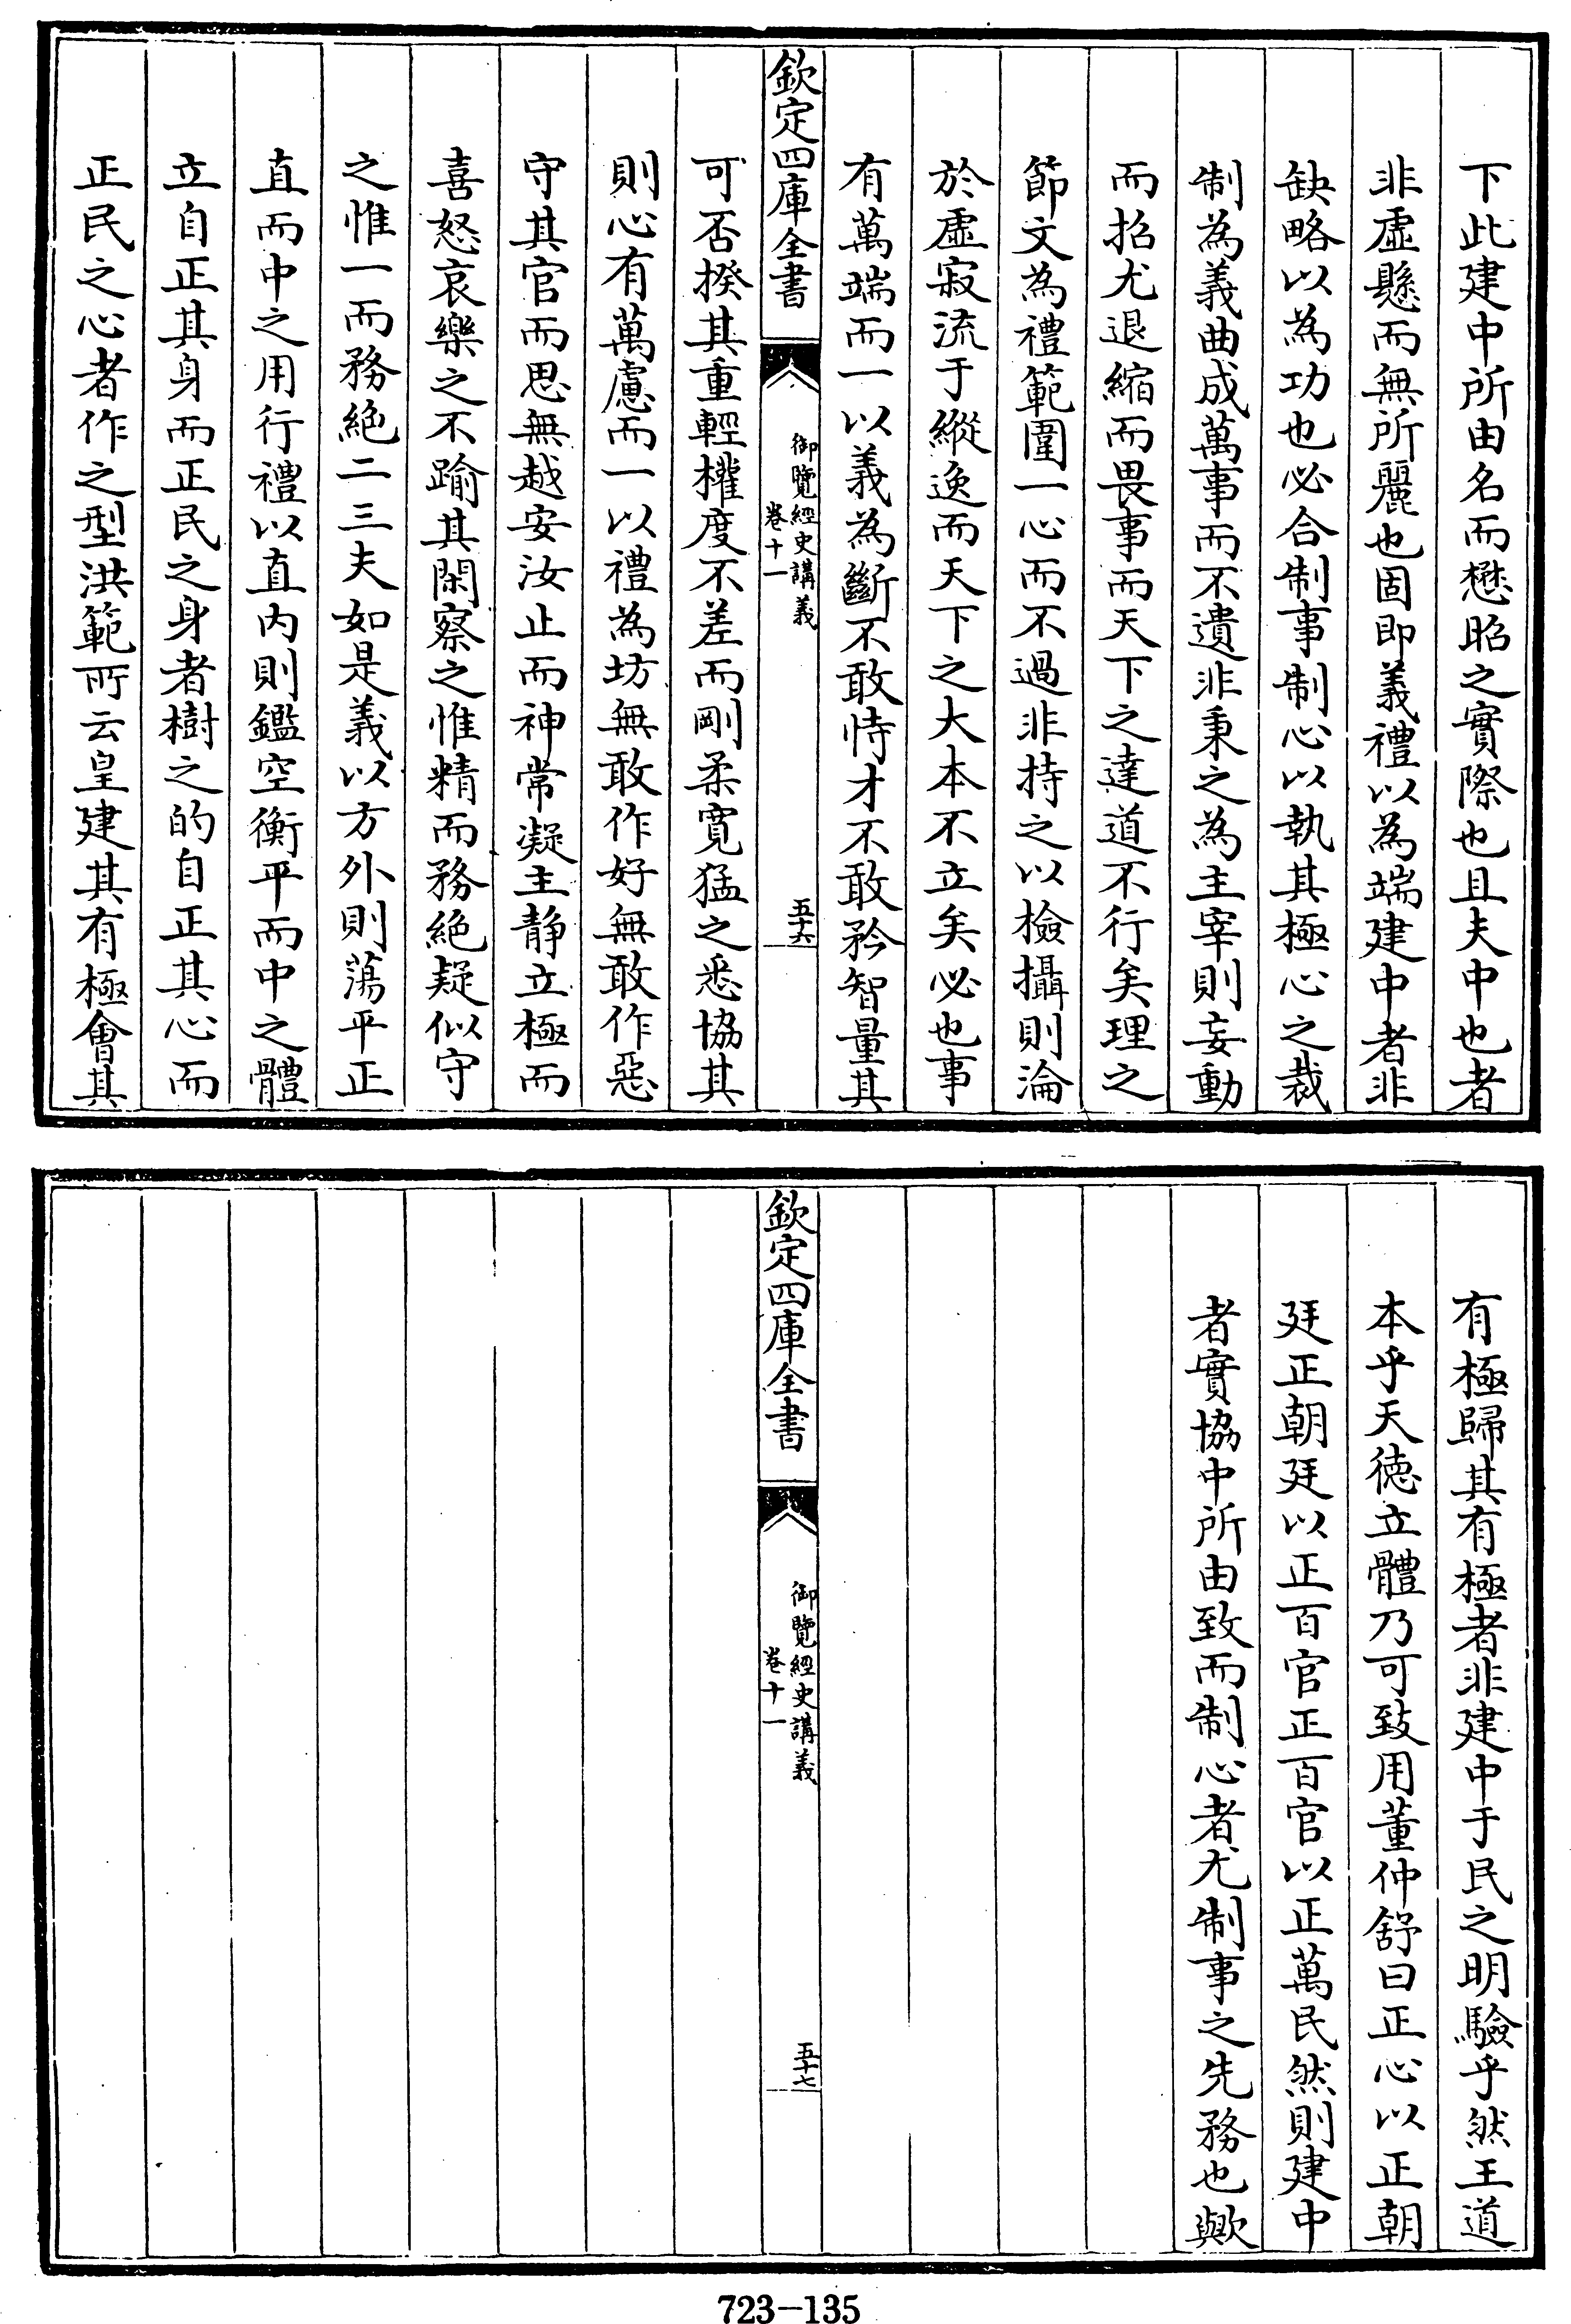 下此建中所由名而懋昭之實際也且夫中也者
非虛懸而無所麗也固即義禮以為端建中者非
缺略以為功也必合制事制心以執其極心之裁
制為義曲成萬事而不遺非秉之為主宰則妄動
而招尤退縮而畏事而天下之達道不行矣理之
節文為禮範圍一心而不過非持之以檢攝則淪
於虛寂流于縱逸而天下之大本不立矣必也事
有萬端而一以義為斷不敢恃才不敢矜智量其
欽定四庫全書
御覽經史講義
卷十一
五十六
可否揆其重輕權度不差而剛柔寬猛之悉協其
則心有萬慮而一以禮為坊無敢作好無敢作惡
守其官而思無越安汝止而神常凝主靜立極而
喜怒哀樂之不踰其閑察之惟精而務絕疑似守
之惟一而務絕二三夫如是義以方外則蕩平正
直而中之用行禮以直内則鑑空衡平而中之體
立自正其身而正民之身者樹之的自正其心而
正民之心者作之型洪範所云皇建其有極會其
有極歸其有極者非建中于民之明驗乎然王道
本乎天德立體乃可致用董仲舒曰正心以正朝
廷正朝廷以正百官正百官以正萬民然則建中
者實協中所由致而制心者尤制事之先務也歟
欽定四庫全書
御覽經史講義
卷十一
五十七
723-135